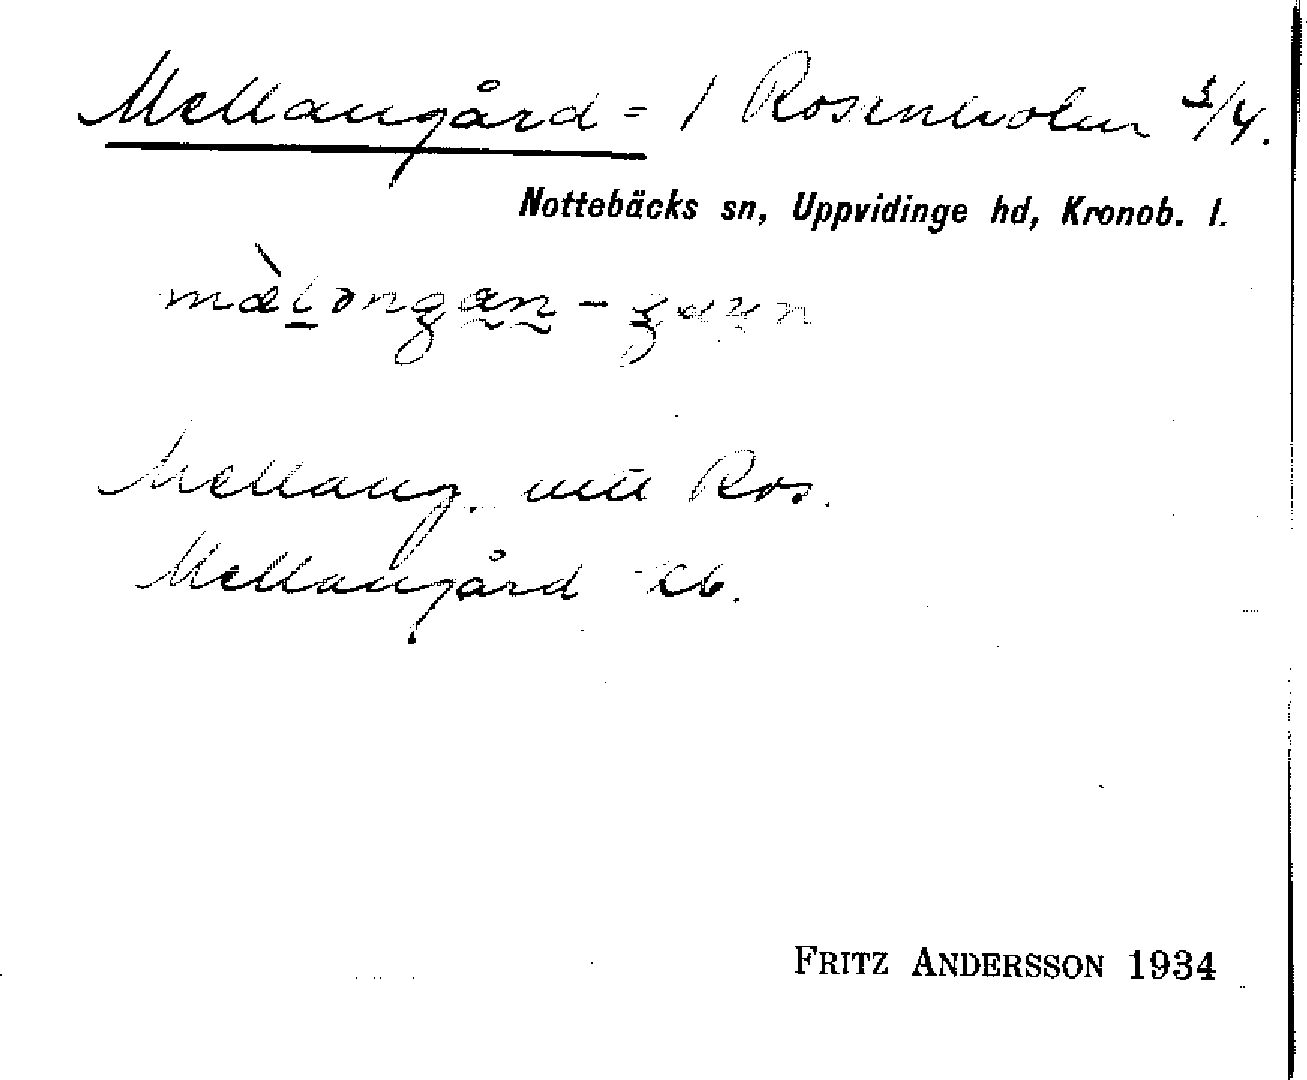 Mellangård = 1 Rosenholm 3/4.
Nottebäcks sn, Uppvidinge hd, Kronob. l.
Mellang. Ros.
Mellangård
FRITZ ANDERSSON 1934